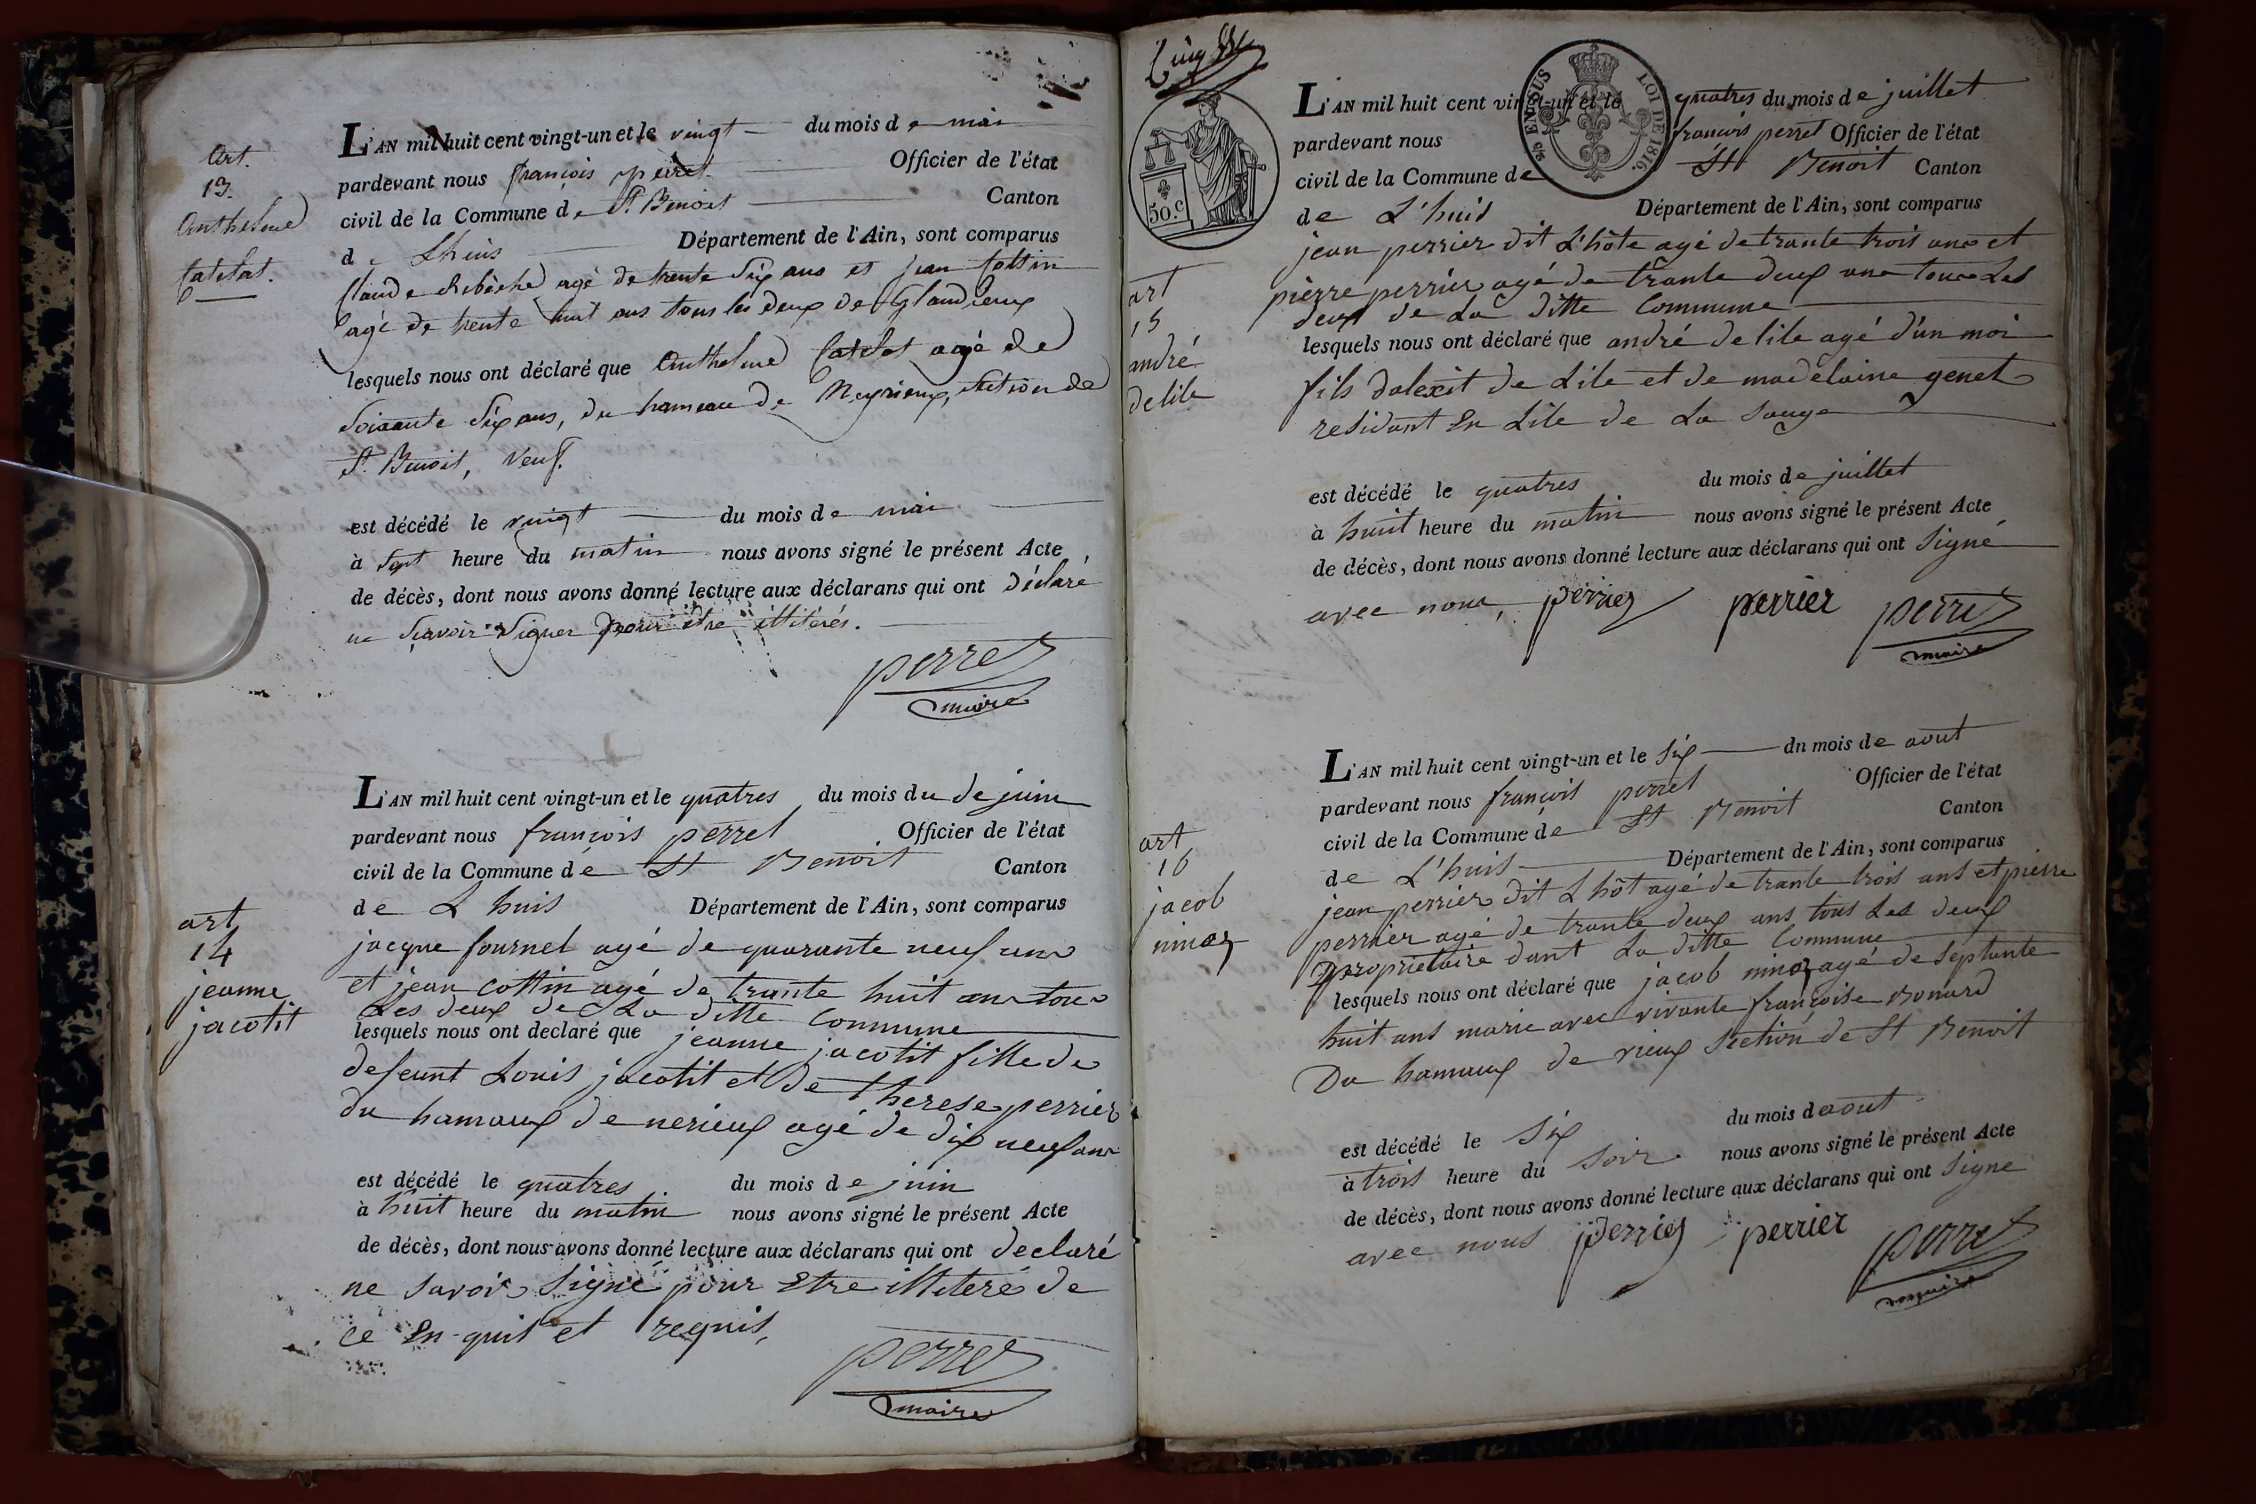 Art.
13.
Anthelme
Catelat.
L'AN mil huit cent vingt-un et le vingt du mois de mai
pardevant nous françois perret Officier de l'état
civil de la Commune de St. Benoit Canton
de Lhuis Département de l'Ain, sont comparus
Claude Rebêche agé de trente Six ans et jean Cottin
agé de trente huit ans tous les deux de Glandieux
lesquels nous ont déclaré que Anthelme Catelat agé de
Soixante Six ans, du hameau de Neyrieux, section de
St. Benoit, veuf.
est décédé le vingt du mois de mai
à Sept heure du matin nous avons signé le présent Acte
de décès, dont nous avons donné lecture aux déclarans qui ont déclaré
ne sçavoir Signer pour être illitérés.
perret
maire
art
14
jeanne
jacotit
L'AN mil huit cent vingt-un et le quatres du mois du de juin
pardevant nous françois perret Officier de l'état
civil de la Commune dé St Benoit Canton
de L huis Département de l'Ain, sont comparus
jacque fournel agé de quarante neuf ans
et jean cottin agé de trante huit ans tous
Les deux de La ditte Commune
lesquels nous ont declaré que jeanne jacotit fille de
defeunt Louis jacotit et de therese perrier
du hamaux de nerieux agé de dix neuf ans
est décédé le quatres du mois de juin
à huit heure du matin nous avons signé le présent Acte
de décès, dont nous avons donné lecture aux déclarans qui ont declaré
ne savoir Signé pour Etre illiteré de
ce En-quit et requis,
perret
maire
EN SUS
LOI DE 1816.
50.c
art
15
andré
delile
L'AN mil huit cent vingt-un et le quatres du mois de juillet
pardevant nous françois perret Officier de l'état
civil de la Commune de St Benoit Canton
de L'huis Département de l'Ain, sont comparus
jean perrier dit L'hôte agé de trante trois ans et
pièrre perrièr agé de trante deux ans tous Les
deux de La ditte Commune
lesquels nous ont déclaré que andré delile agé d'un moi
fils dalexit de Lile et de madelaine genet
residant En Lile de La Sauge
est décédé le quatres du mois de juillet
à huit heure du matin nous avons signé le présent Acte
de décès, dont nous avons donné lecture aux déclarans qui ont Signé
avec nous, perrier perrièr perret
maire
art
16
jacob
ninoz
L'AN mil huit cent vingt-un et le Six du mois de aout
pardevant nous françoit perret Officier de l'état
civil de la Commune de St Benoit Canton
de L'huis Département de l'Ain, sont comparus
jean perrièr dit L hôt agé de trante trois ans et pièrre
perrièr agé de trante deux ans tous Les deux
proprietaire dant La ditte Commune
lesquels nous ont déclaré que jacob ninoz agé de septante
huit ans marie avec vivante françoise Bonard
Du hamaux de rieux Section de St Benoit
est décédé le Six du mois daout
à trois heure du Soir nous avons signé le présent Acte
de décès, dont nous avons donné lecture aux déclarans qui ont Signe
avec nous perrier perrièr perret
maire